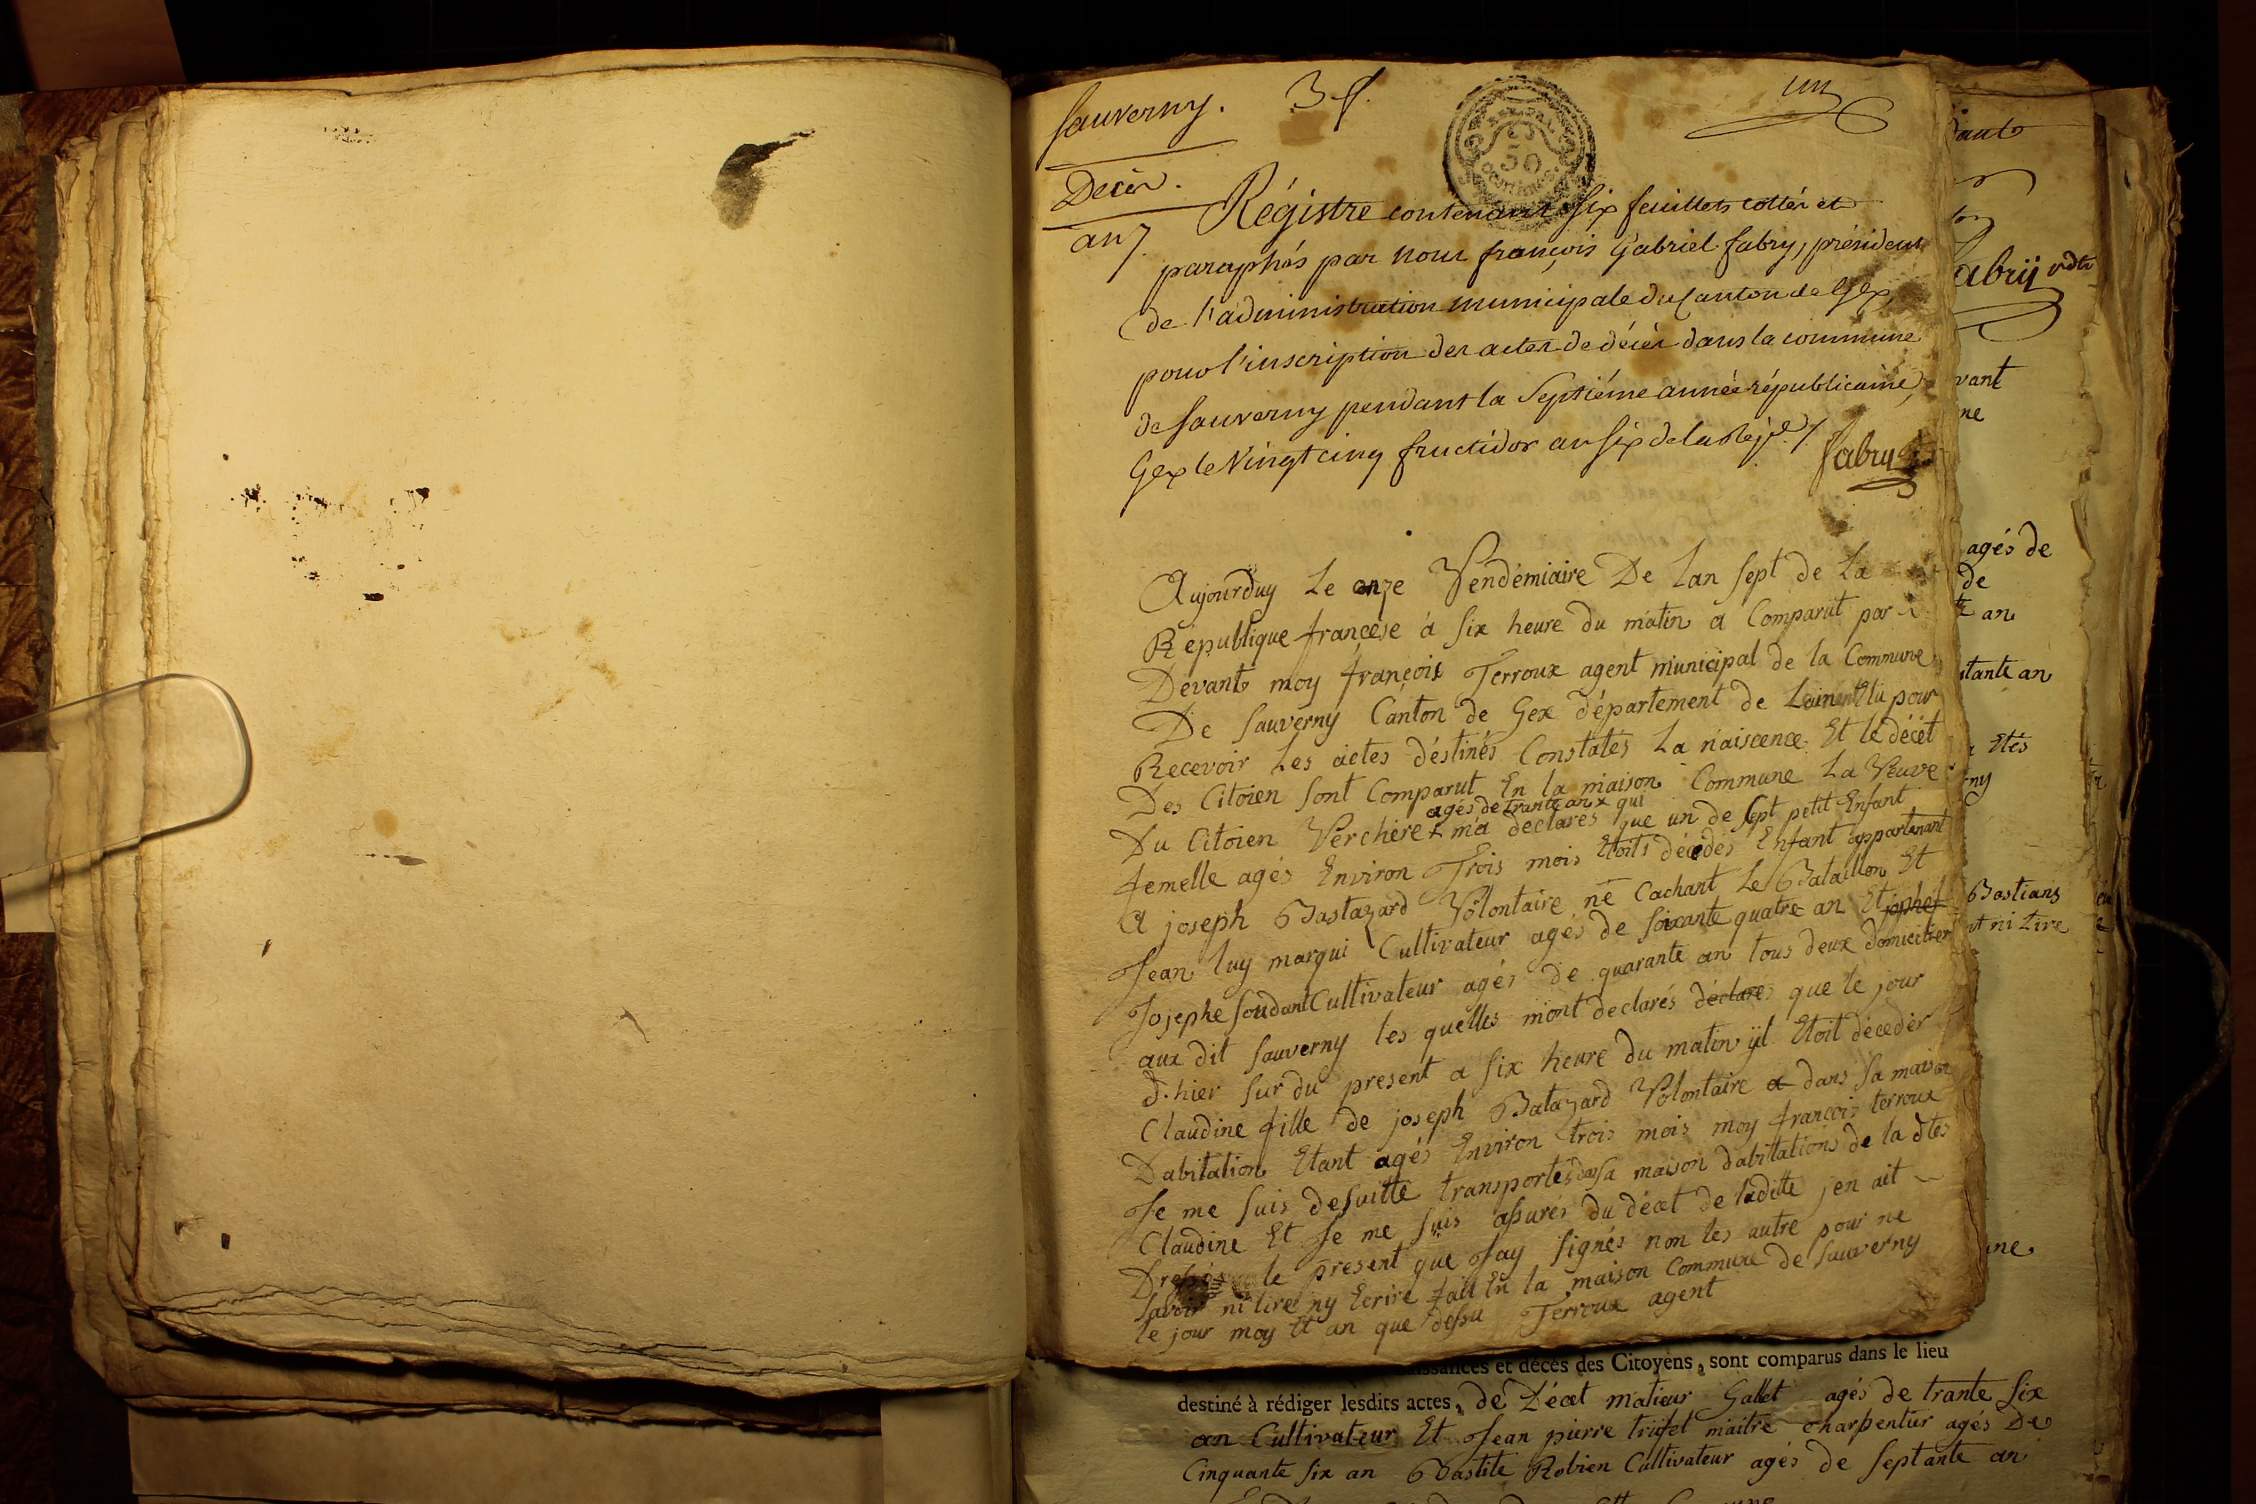 Sauverny. 3 f. un
Decès.
an 7
50
centimes
Régistre contenant six feuillets cottés et
paraphés par nous françois Gabriel fabry, président
de l'administration municipale du Canton de Gex,
pour l'inscription des actes de décès dans la commune
de Sauverny pendant la Septiéme année républicaine,
Gex le Vingt cinq fructidor an six de la
fabry
Aujourduy Le onze Vendémiaire De Lan sept de La
Republique françese à six heure du matin a Comparut par
Devant moy françois Terroux agent municipal de la Commune
De Sauverny Canton de Gex département de Lain Elû pour
Recevoir Les actes déstinés Constates La naiscence Et le décèt
Des Citoien sont Comparut En la maison Commune La Veuve
agés de trante an x qui
Du Citoien Verchere x m'a declares que un de sept petit Enfant
femelle agés Environ Trois mois Etoits décedés Enfant appartenant
A joseph Bastazard Volontaire né Cachant Le Bataillon Et
Jean luy marqui Cultivateur agés de soixante quatre an Et josphe
Josephe soudant Cultivateur agés de quarante an tous deux domicilier
aux dit Sauverny les quelles m'ont declarés déclares que le jour
d'hier sur du present a six heure du matin yil Etoit déceder
Claudine fille de joseph Batazard Volontaire a dans sa maison
Dabitation Etant agés Environ trois mois moy françois terroux
Je me suis de suitte transportés dans sa maison dabitations de la dtes
Claudine Et Je me suis assurés du décet de laditte j'en ait
le present que Jay signés non les autre pour ne
savoir ni lire ny Ecrire fait En la maison Commune de Sauverny
le jour moy Et an que dessu Terroux agent
ant
abrij
vant
ne
agés de
de
an
tante an
Etés
ny
Bastians
ni Lire
ne
issances et décès des Citoyens, sont comparus dans le lieu
destiné à rédiger lesdits actes, de Décet matieur Gallet agés de trante six
an Cultivateur Et Jean pierre trufet maitre charpentier agés De
Cinquante six an Bastite Robien Cultivateur agés de septante an